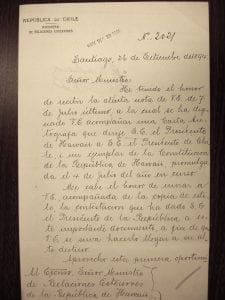 REPÚBLICA DE CHILE
MINISTERIO
DE RELACIONES EXTERIORES
Nº 2021
Santiago, 26 de Setiembre de 1894.
Señor Ministro:
He tenido el honor
de recibir la atenta nota de V.E. de 7
de julio último, a la cual se ha dig-
nado V.E. acompañar una Carta Au-
tógrafa que dirije S.E. el Presidente
de Hawaii a S.E. el Presidente de Chi-
le i un ejemplar de la Constitucion
de la República de Hawaii, promulga-
da el 4 de julio del año en curso.
Me cabe el honor de enviar a
V.E., acompañada de la copia de esti-
lo, la contestacion que ha dado S.E.
el Presidente de la República a es-
te importante documento, a fin de que
V.E. se sirva hacerla llegar a su al-
to destino.
Aprovecho esta primera oportuni-
Al Excmo. Señor Ministro
de Relaciones Esteriores
de la República de Hawaii.